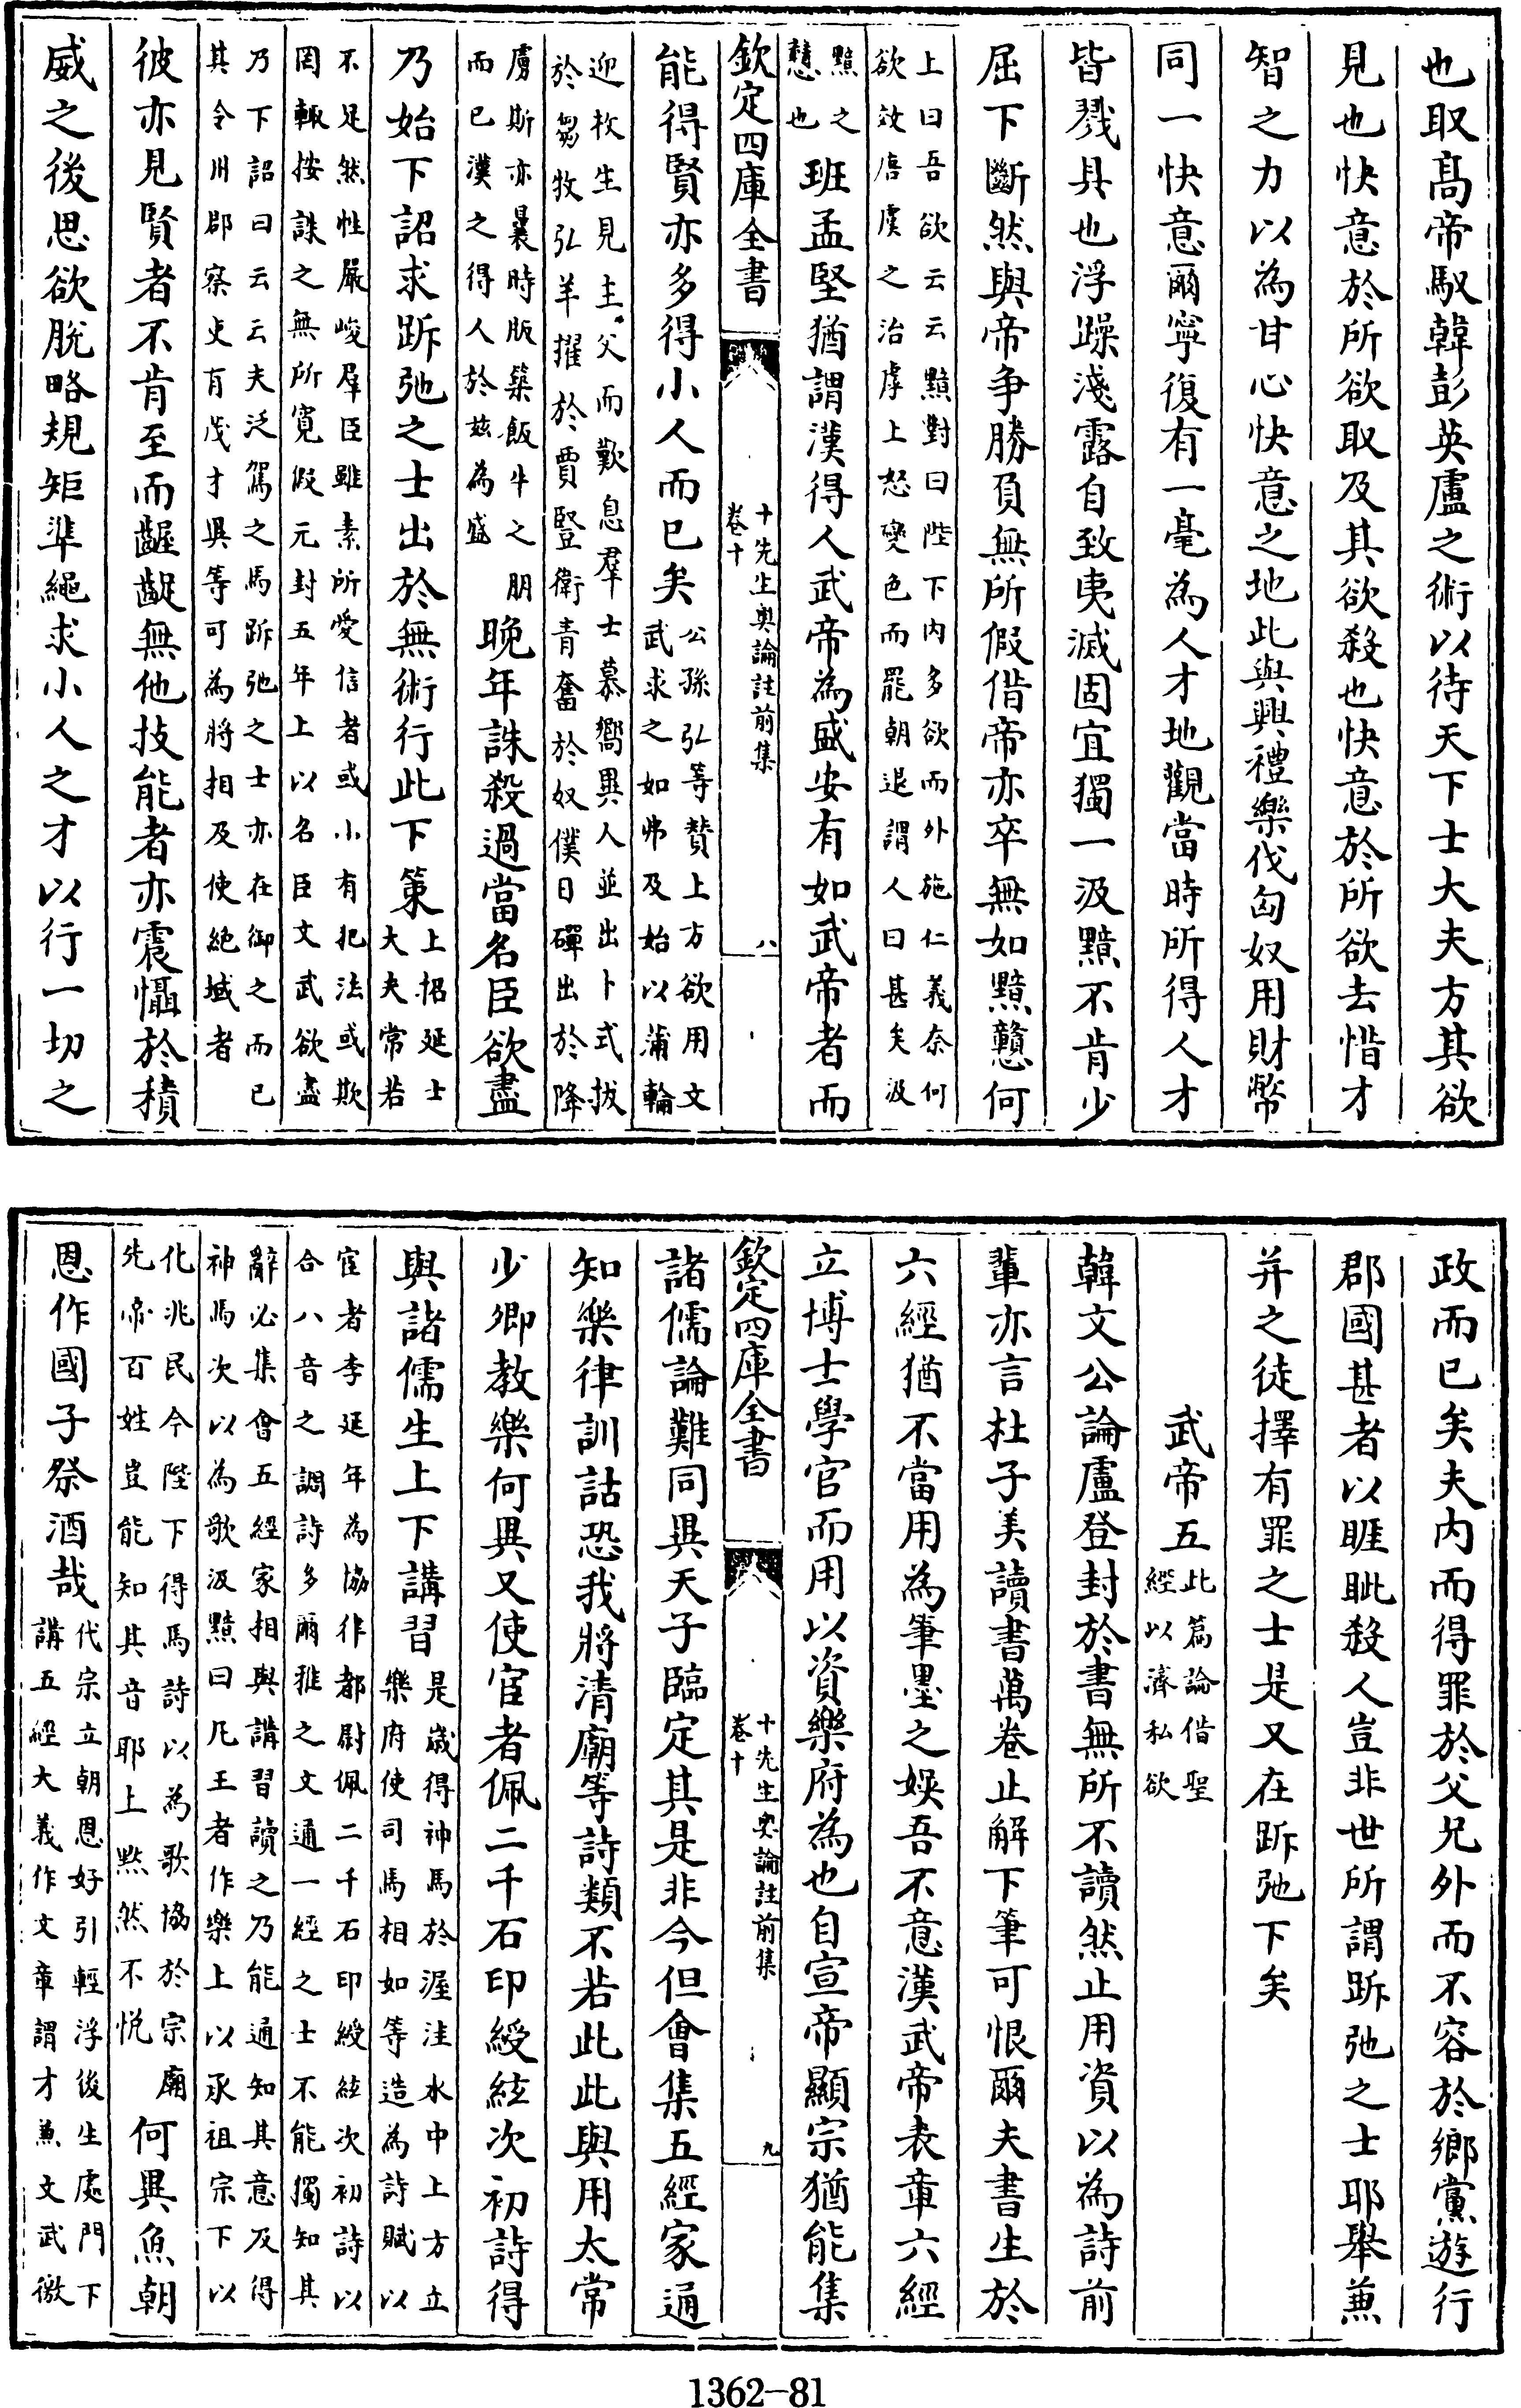 也取髙帝馭韓彭英盧之術以待天下士大夫方其欲
見也快意於所欲取及其欲殺也快意於所欲去惜才
智之力以為甘心快意之地此與興禮樂伐匈奴用財幣
同一快意爾寧復有一毫為人才地觀當時所得人才
皆戮具也浮躁淺露自致夷滅固宜獨一汲黯不肯少
屈下斷然與帝争勝負無所假借帝亦卒無如黯戇何
上曰吾欲云云黯對曰陛下内多欲而外施仁義奈何
欲效唐虞之治虖上怒變色而罷朝退謂人曰甚矣汲
黯之
戇也
班孟堅猶謂漢得人武帝為盛安有如武帝者而
欽定四庫全書
十先生奥論註前集
卷十
八
能得賢亦多得小人而已矣
公孫弘等賛上方欲用文
武求之如弗及始以蒲輪
迎枚生見主父而歎息羣士慕嚮異人並出卜式拔
於芻牧弘羊擢於賈豎衛青奮於奴僕日磾出於降
虜斯亦曩時版築飯牛之朋
而已漢之得人於兹為盛
晚年誅殺過當名臣欲盡
乃始下詔求跅弛之士出於無術行此下策
上招延士
大夫常若
不足然性嚴峻羣臣雖素所愛信者或小有犯法或欺
罔輙按誅之無所寛假元封五年上以名臣文武欲盡
乃下詔曰云云夫泛駕之馬跅弛之士亦在御之而已
其令州郡察吏有茂才異等可為將相及使絶域者
彼亦見賢者不肯至而齷齪無他技能者亦震懾於積
威之後思欲脱略規矩準繩求小人之才以行一切之
政而已矣夫内而得罪於父兄外而不容於鄉黨遊行
郡國甚者以睚眦殺人豈非世所謂跅弛之士耶舉兼
并之徒擇有罪之士是又在跅弛下矣
武帝五
此篇論借聖
經以濟私欲
韓文公論盧登封於書無所不讀然止用資以為詩前
輩亦言杜子美讀書萬卷止解下筆可恨爾夫書生於
六經猶不當用為筆墨之娱吾不意漢武帝表章六經
立博士學官而用以資樂府為也自宣帝顯宗猶能集
欽定四庫全書
十先生奥論註前集
卷十
九
諸儒論難同異天子臨定其是非今但會集五經家通
知樂律訓詁恐我將清廟等詩類不若此此與用太常
少卿教樂何異又使宦者佩二千石印綬絃次初詩得
與諸儒生上下講習
是歲得神馬於渥洼水中上方立
樂府使司馬相如等造為詩賦以
宦者李延年為協律都尉佩二千石印綬絃次初詩以
合八音之調詩多爾雅之文通一經之士不能獨知其
辭必集會五經家相與講習讀之乃能通知其意及得
神馬次以為歌汲黯曰凡王者作樂上以承祖宗下以
化兆民今陛下得馬詩以為歌協於宗廟
先帝百姓豈能知其音耶上黙然不悦
何異魚朝
恩作國子祭酒哉
代宗立朝恩好引輕浮後生處門下
講五經大義作文章謂才兼文武徼
1362-81